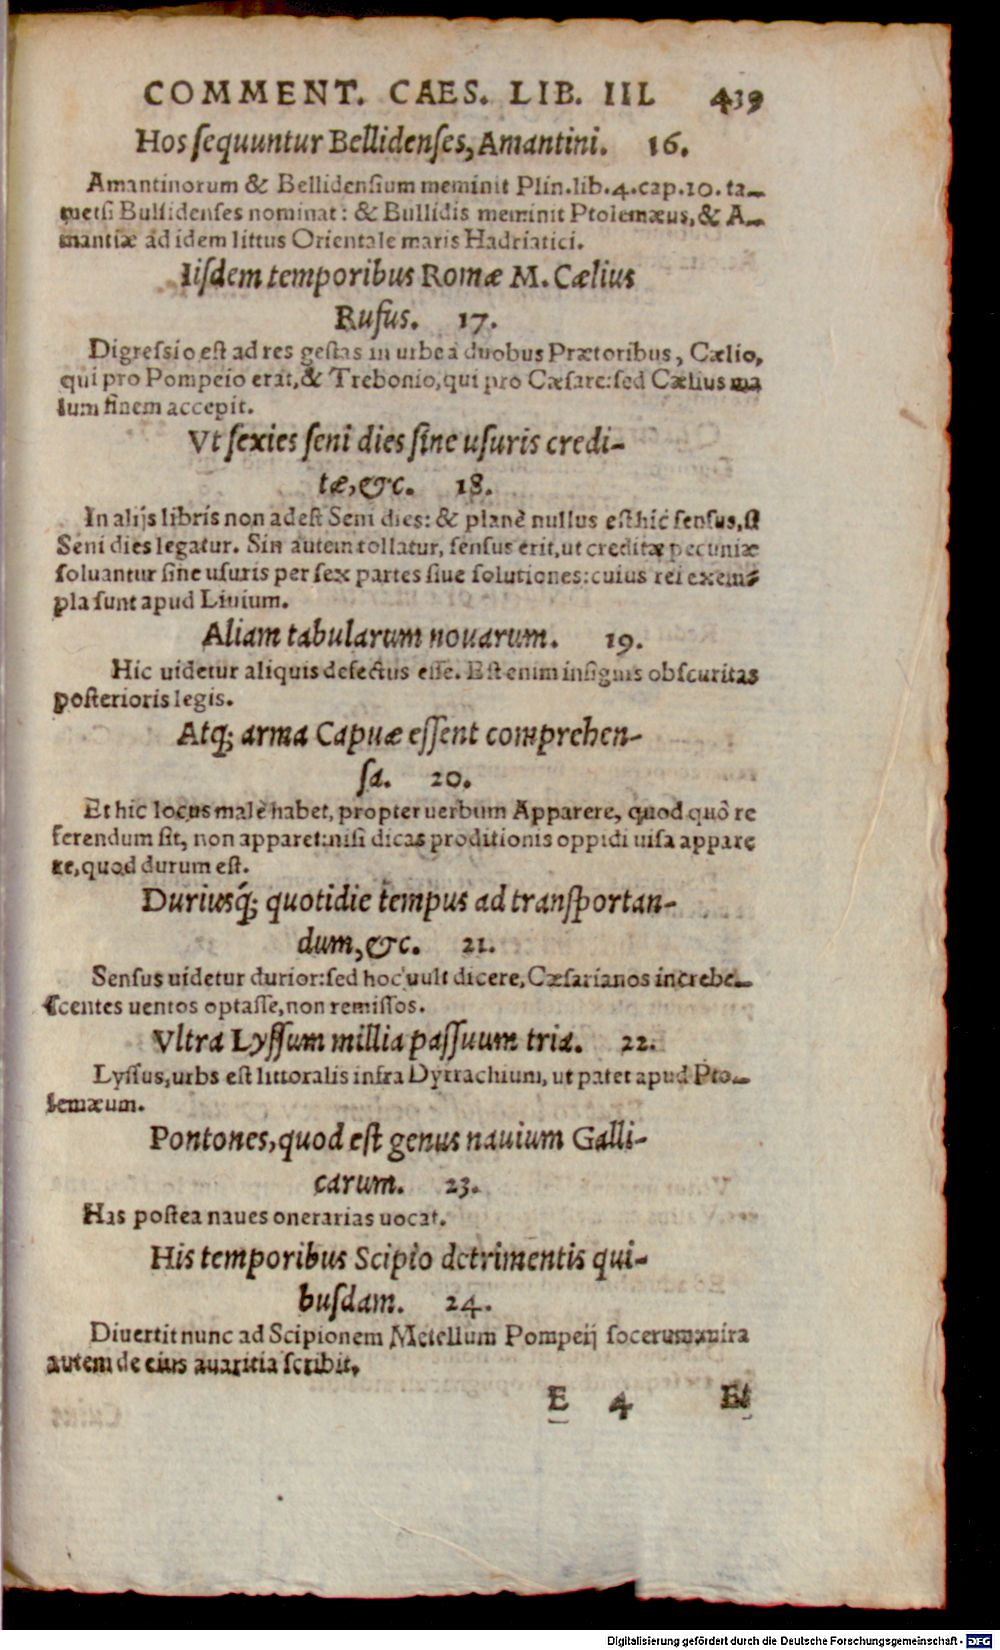 COMMENT. CAES. LIB. III. 439
Hos sequuntur Bellidenses, Amantini. 16.
Amantinorum & Bellidensium meminit Plin. lib. 4. cap. 10. ta-
metsi Bullidenses nominat: & Bullidis meminit Ptolemæus, & A-
mantiæ ad idem littus Orientale maris Hadriatici.
Iisdem temporibus Romæ M. Cælius
Rufus. 17.
Digressio est ad res gestas in urbe à duobus Prætoribus, Cælio,
qui pro Pompeio erat, & Trebonio, qui pro Cæsare: sed Cælius ma
lum finem accepit.
Vt sexies seni dies sine usuris credi-
tæ, &c. 18.
In alijs libris non adest Seni dies: & planè nullus est hic sensus, si
Seni dies legatur. Sin autem tollatur, sensus erit, ut creditæ pecuniæ
soluantur sine usuris per sex partes siue solutiones: cuius rei exem-
pla sunt apud Liuium.
Aliam tabularum nouarum. 19.
Hic uidetur aliquis defectus esse. Est enim insignis obscuritas
posterioris legis.
Atq; arma Capuæ essent comprehen-
sa. 20.
Et hic locus malè habet, propter uerbum Apparere, quod quò re
ferendum sit, non apparet: nisi dicas proditionis oppidi uisa appare
re, quod durum est.
Duriusq́; quotidie tempus ad transportan-
dum, &c. 21.
Sensus uidetur durior: sed hoc uult dicere, Cæsarianos increbe-
scentes uentos optasse, non remissos.
Vltra Lyssum millia passuum tria. 22.
Lyssus, urbs est littoralis infra Dyrrachium, ut patet apud Pto-
lemæum.
Pontones, quod est genus nauium Galli-
carum. 23.
Has postea naues onerarias uocat.
His temporibus Scipio detrimentis qui-
busdam. 24.
Diuertit nunc ad Scipionem Metellum Pompeij socerum: mira
autem de eius auaritia scribit.
E 4 Et
Digitalisierung gefördert durch die Deutsche Forschungsgemeinschaft - DFG